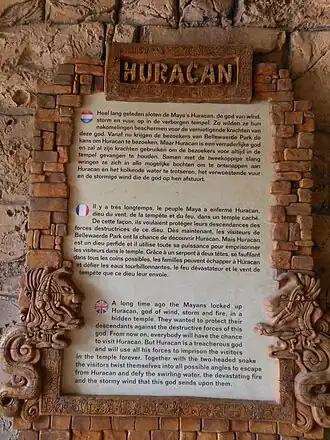 HURACAN
Heel lang geleden sloten de Maya's Huracan, de god van wind,
storm en vuur, op in de verborgen tempel. Zo wilden ze hun
nakomelingen beschermen voor de vernietigende krachten van
deze god. Vanaf nu krijgen de bezoekers van Bellewaerde Park de
kans om Huracan te bezoeken. Maar Huracan is een verraderlijke god
en zal al zijn krachten gebruiken om de bezoekers voor altijd in de
tempel gevangen te houden. Samen met de tweekoppige slang
wringen ze zich in alle mogelijke bochten om te ontsnappen aan
Huracan en het kolkende water te trotseren, het verwoestende vuur
en de stormige wind die de god op hen afstuurt.
Il y a très longtemps, le peuple Maya a enfermé Huracan,
dieu du vent, de la tempête et du feu, dans un temple caché.
De cette façon, ils voulaient protéger leurs descendances des
forces destructrices de ce dieu. Dès maintenant, les visiteurs de
Bellewaerde Park ont la chance de découvrir Huracan. Mais Huracan
est un dieu perfide et il utilise toute sa puissance pour emprisonner
les visiteurs dans le temple. Grâce à un serpent à deux têtes, se faufilant
dans tous les coins possibles, les familles peuvent échapper à Huracan
et défier les eaux tourbillonnantes, le feu dévastateur et le vent de
tempête que dieu leur envoie.
A long time ago the Mayans locked up
Huracan, god of wind, storm and fire, in a
hidden temple. They wanted to protect their
descendants against the destructive forces of this
god. From now on, everybody will have the chance
to visit Huracan. But Huracan is a treacherous god
and will use all his forces to imprison the visitors
in the temple forever. Together with the two-headed snake
the visitors twist themselves into all possible angles to escape
from Huracan and defy the swirling water, the devastating fire
and the stormy wind that this god sends upon them.